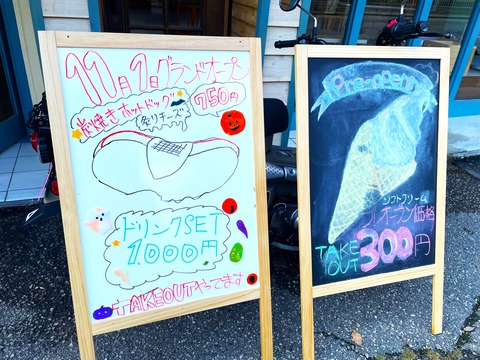 11月1日グランドオープン
炭焼きホットドッグ
(炙りチーズ)
750円
ドリンクSET
1.000円
TAKEOUTやってます
Pre-open
ソフトクリーム
プレオープン価格
TAKE
OUT
300円